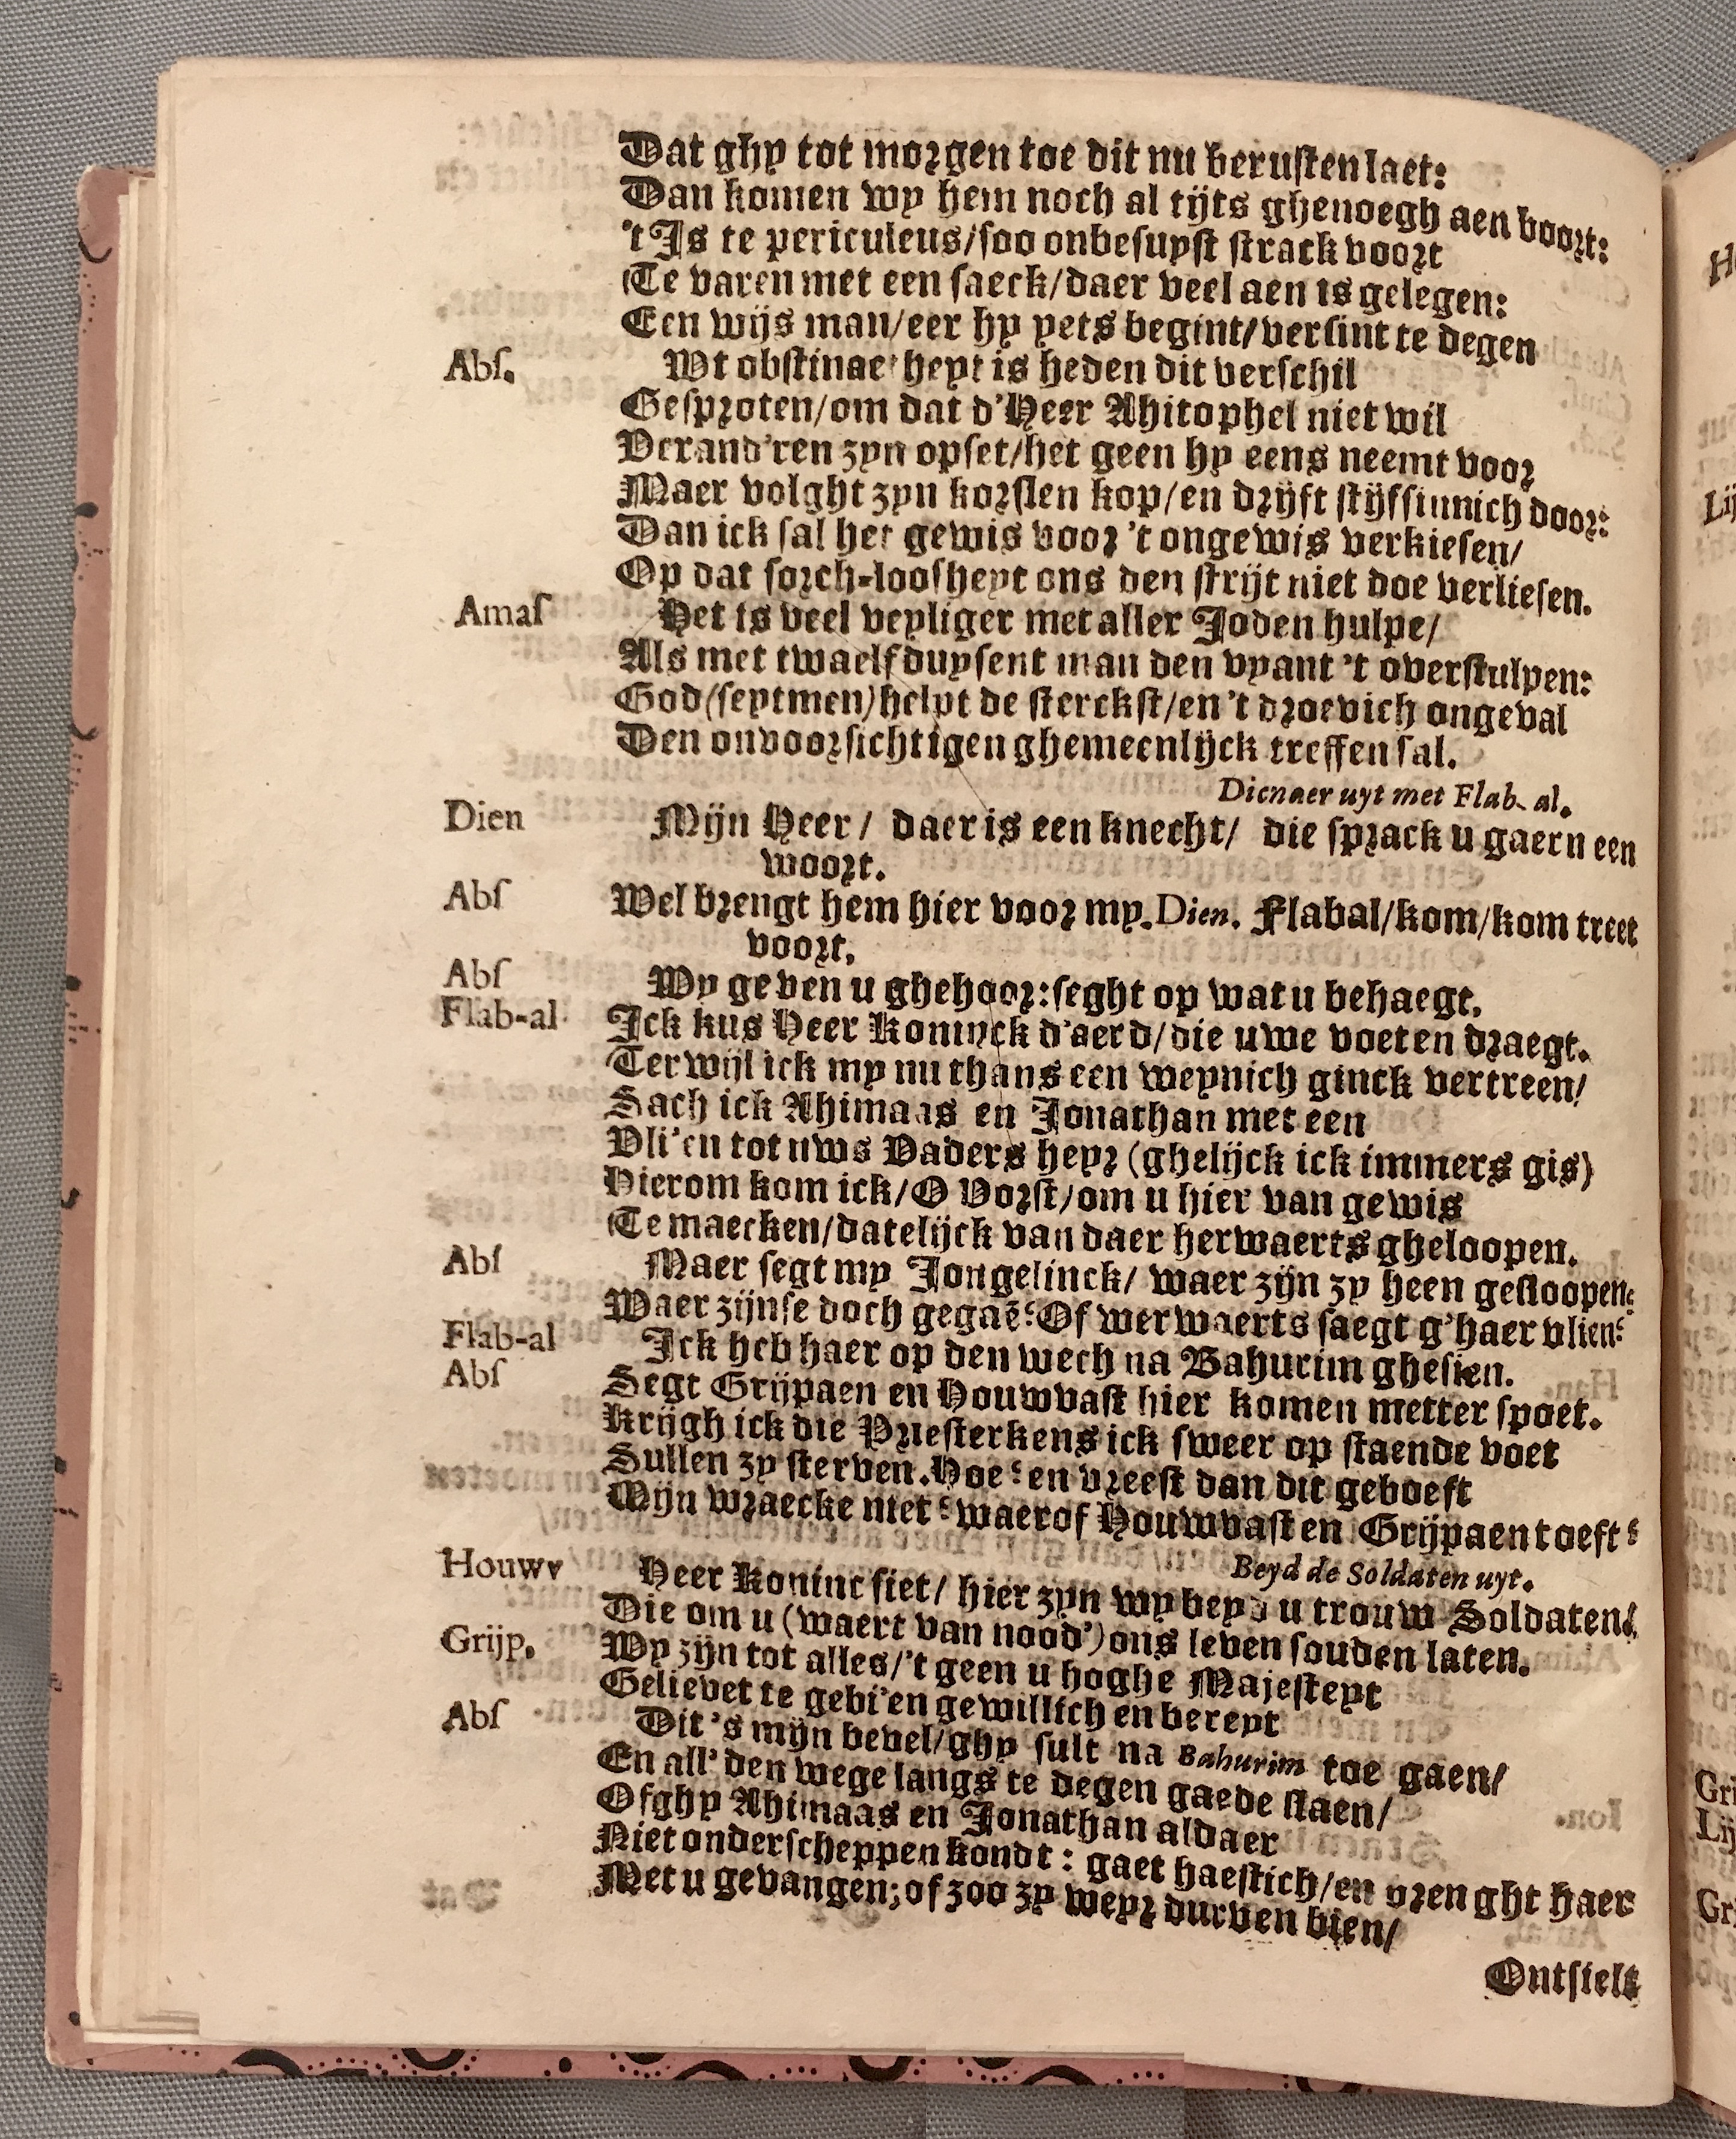 Dat ghy tot morgen toe dit nu berusten laet:
Dan komen wy hem noch al tijts ghenoegh aen boort:
't Is te periculeus/soo onbesuyst strack voort
Te varen met een saeck/daer veel aen is gelegen:
Een wijs man/eer hy yets begint/versint te degen
Abs. Wt obstinaetheyt is heden dit verschil
Gesproten/om dat d'Heer Ahitophel niet wil
Verand'ren zyn opset/het geen hy eens neemt voor
Maer volght zyn korslen kop/en drijft stijfsinnich door:
Dan ick sal het gewis voor 't ongewis verkiesen/
Op dat sorch-loosheyt ons den strijt niet doe verliesen.
Amas Het is veel veyliger met aller Joden hulpe/
Als met twaelf duysent man den vyant 't overstulpen:
God (seytmen) helpt de sterckst/en 't droevich ongeval
Den onvoorsichtigen ghemeenlijck treffen sal.
Dienaer uyt met Flab-al.
Dien Mijn Heer/ daer is een knecht/ die sprack u gaern een
woort.
Abs Wel brengt hem hier voor my. Dien. Flabal/kom/kom treet
voort.
Abs Wy geven u ghehoor: seght op wat u behaegt.
Flab-al Ick kus Heer Koninck d'aerd/die uwe voeten draegt.
Terwijl ick my nu thans een weynich ginck vertreen/
Sach ick Ahimaas en Jonathan met een
Vli'en tot uws Vaders heyr (ghelijck ick immers gis)
Hierom kom ick/O Vorst/om u hier van gewis
Te maecken/datelijck van daer herwaerts gheloopen.
Abs Maer segt my Jongelinck/ waer zijn zy heen gesloopen?
Waer zijnse doch gegaē? Of werwaerts saegt g'haer vlien?
Flab-al Ick heb haer op den wech na Bahurim ghesien.
Abs Segt Grijpaen en Houwvast hier komen metter spoet.
Krijgh ick die Priesterkens ick sweer op staende voet
Sullen zy sterven. Hoe? en vreest dan dit geboeft
Mijn wraecke niet? waer of Houwvast en Grijpaen toeft?
Beyd de Soldaten uyt.
Houwv Heer Koninc siet/ hier zyn wy beyd u trouw Soldaten/
Die om u (waert van nood') ons leven souden laten.
Grijp. Wy zijn tot alles/'t geen u hoghe Majesteyt
Gelievet te gebi'en gewillich en bereyt
Abs Dit 's mijn bevel/ghy sult na Bahurim toe gaen/
En all' den wege langs te degen gaede slaen/
Of ghy Ahimaas en Jonathan aldaer
Niet onderscheppen kondt: gaet haestich/en brenght haer
Met u gevangen; of zoo zy weyr durven bien/
Ontsielt